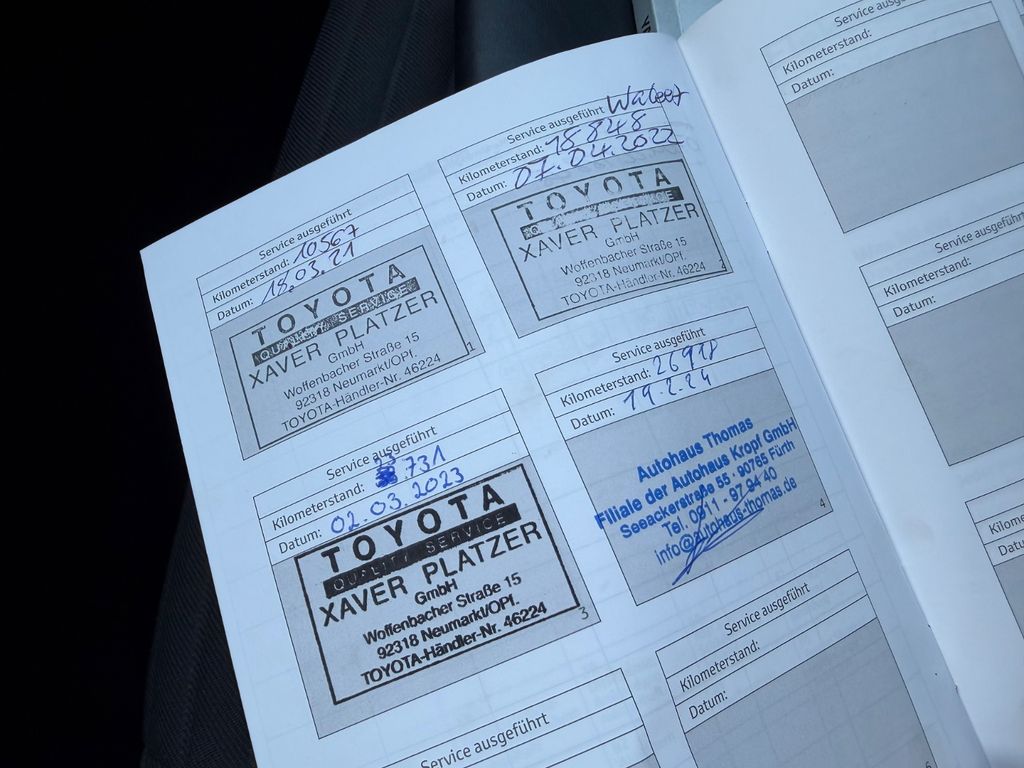 Service ausgeführt
Kilometerstand: 10567
Datum: 18.03.21
TOYOTA
QUALITY SERVICE
XAVER PLATZER
GmbH
Woffenbacher Straße 15
92318 Neumarkt/OPf.
TOYOTA-Händler-Nr. 46224
1
Service ausgeführt
Kilometerstand: 18848
Datum: 07.04.2022
TOYOTA
XAVER PLATZER
GmbH
Woffenbacher Straße 15
92318 Neumarkt/OPf.
TOYOTA-Händler-Nr. 46224
Service ausgeführt
Kilometerstand: 731
Datum: 02.03.2023
TOYOTA
QUALITY SERVICE
XAVER PLATZER
GmbH
Woffenbacher Straße 15
92318 Neumarkt/OPf.
TOYOTA-Händler-Nr. 46224
3
Service ausgeführt
Kilometerstand: 26918
Datum: 19.2.24
Autohaus Thomas
Filiale der Autohaus Kropf GmbH
Seeackerstraße 55 · 90765 Fürth
Tel. 0911 - 97 94 40
info@autohaus-thomas.de
4
Service ausgeführt
Service ausgeführt
Kilometerstand:
Datum:
6
Service ausgefü
Kilometerstand:
Datum:
Service ausgeführt
Kilometerstand:
Datum:
Kilomete
Datu